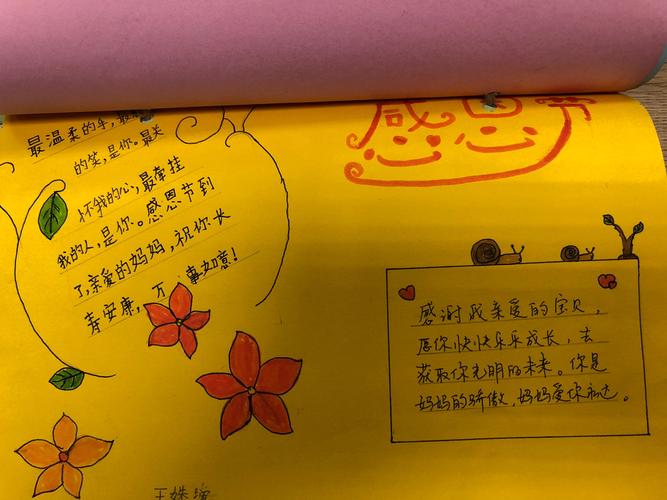 感恩节
最温柔的手,最
的笑,是你。最关
怀我的心,最牵挂
我的人,是你。感恩节到
了,亲爱的妈妈,祝你长
寿安康,万事如意!
感谢我亲爱的宝贝,
愿你快快乐乐成长,去
获取你光明的未来。你是
妈妈的骄傲,妈妈爱你
王姝